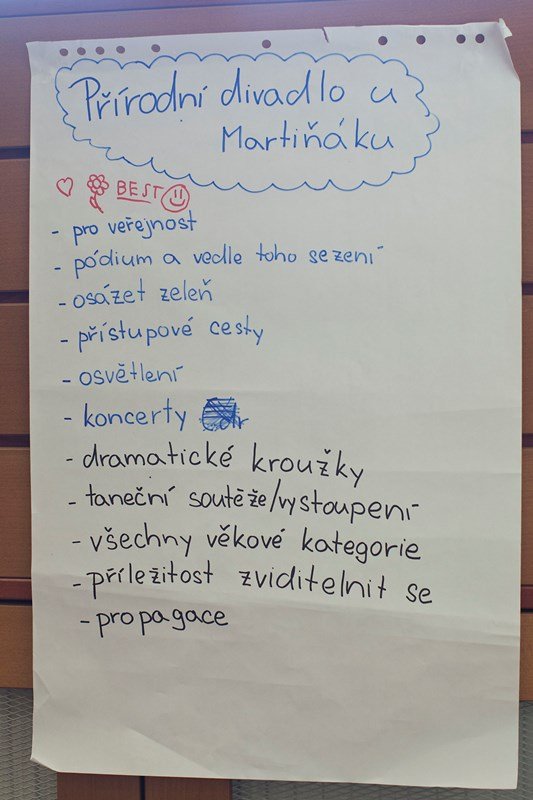 Přírodní divadlo u
Martiňáku
BEST
- pro veřejnost
- pódium a vedle toho sezení
- osázet zeleň
- přístupové cesty
- osvětlení
- koncerty
- dramatické kroužky
- taneční soutěže/vystoupení
- všechny věkové kategorie
- příležitost zviditelnit se
- propagace